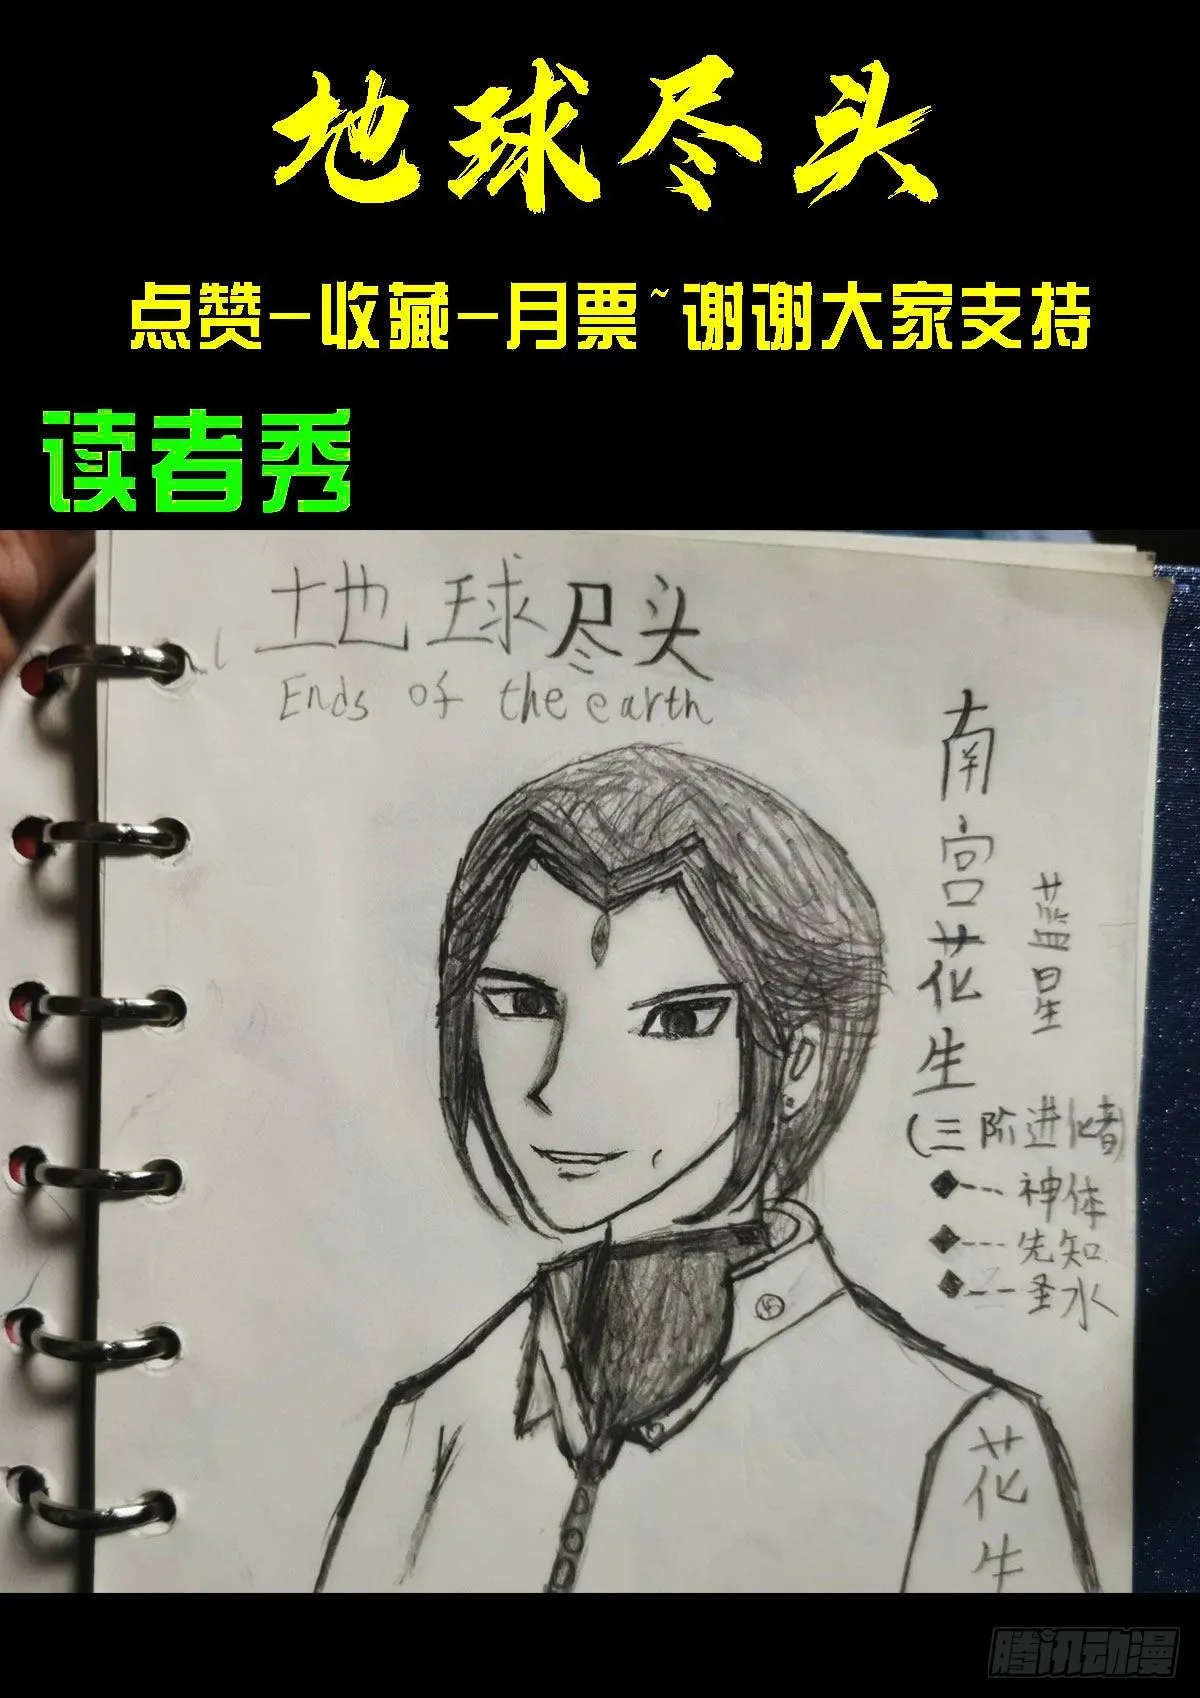 地球尽头
点赞-收藏-月票~谢谢大家支持
读者秀
地球尽头
Ends of the earth
南宫花生
蓝星
(三阶进化者)
◆---神体
◆---先知
◆---圣水
花生
腾讯动漫